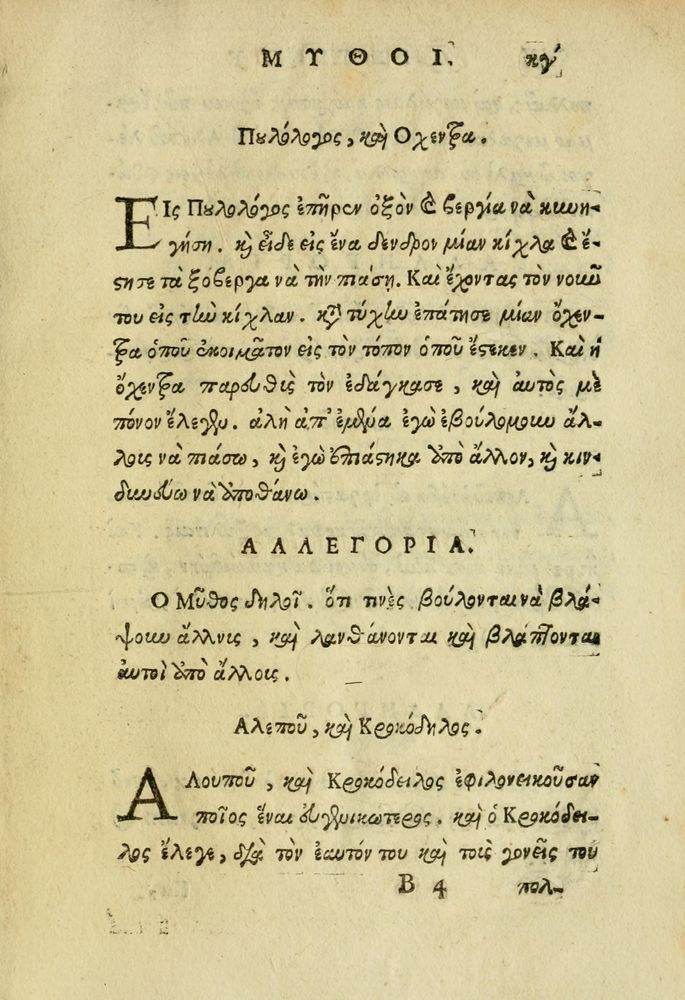 ΜΥΘΟΙ. κγ΄
Πουλόλογος, καὶ Οχεντρα.
ΕΙς Πουλολόγος ἐπῆρεν ὀξὸν καὶ βεργία νὰ κυνη-
γήσῃ. καὶ εἶδε εἰς ἕνα δενδρον μίαν κίχλα καὶ ἔ-
στησε τὰ ξοβεργα νὰ τὴν πιάσῃ. Καὶ ἔχοντας τὸν νοῦν
του εἰς τὴν κίχλαν. κατὰ τύχην ἐπάτησε μίαν ὄχεν-
τρα ὁποῦ ἐκοιμᾶτον εἰς τὸν τόπον ὁποῦ ἔστεκεν. Καὶ ἡ
ὄχεντρα παρευθὶς τὸν ἐδάγκασε, καὶ αὐτὸς μὲ
πόνον ἔλεγεν. ἀλὴ ἀπ' ἐμένα ἐγὼ ἐβούλομουν ἄλ-
λοις νὰ πιάσω, καὶ ἐγὼ ἐπιάστηκα ὑπὸ ἄλλον, καὶ κιν-
δυνεύω νὰ ὑποθάνω.
ΑΛΛΕΓΟΡΙΑ.
Ο Μῦθος δηλοῖ. ὅτι τινὲς βούλονται νὰ βλά-
ψουν ἄλλνις, καὶ λανθάνονται καὶ βλάπτονται
ἀυτοὶ ὑπὸ ἄλλοις.
Αλεποῦ, καὶ Κροκόδηλος.
ΑΛουποῦ, καὶ Κροκόδειλος ἐφιλονεικοῦσαν
ποῖος ἕναι ευγενικώτερος. καὶ ὁ Κροκόδει-
λος ἔλεγε, διὰ τὸν ἑαυτόν του καὶ τοὶς γονεῖς του
Β 4 πολ-